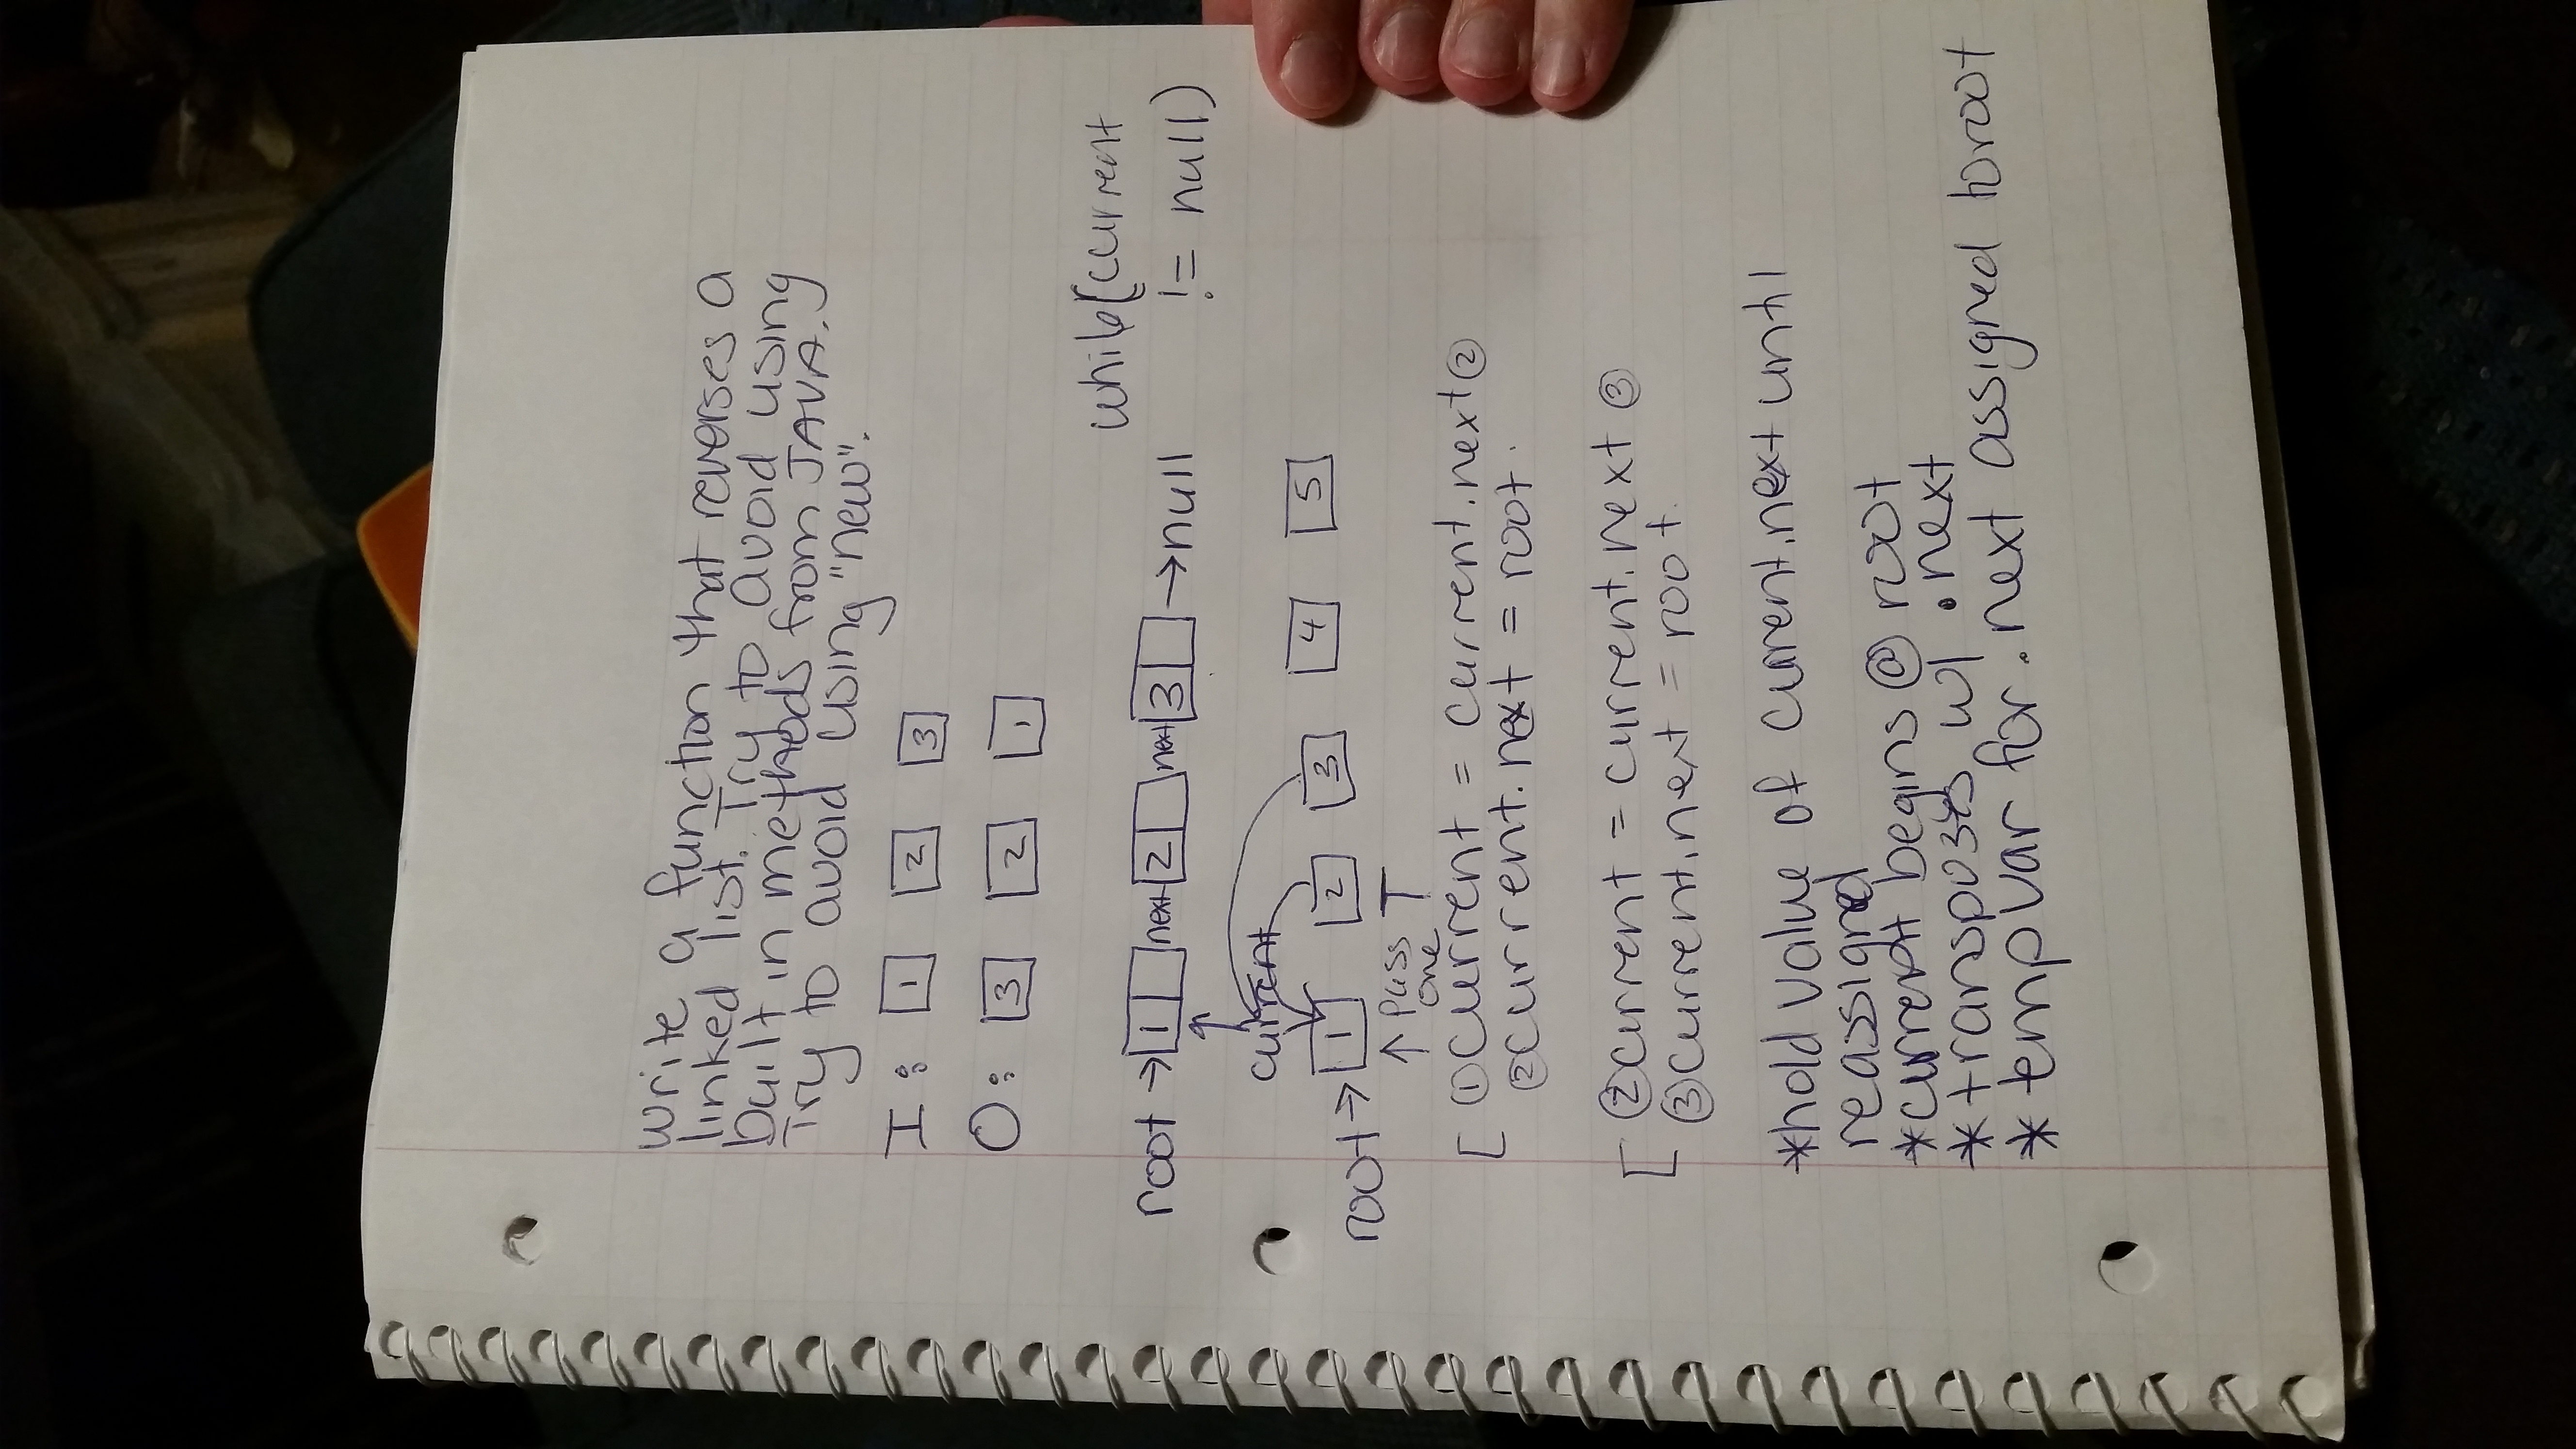 write a function that reverses a
linked list. Try to avoid using
built in methods from JAVA.
Try to avoid using "new".
I: 1 2 3
O: 3 2 1
while(current
!= null)
root → 1 next 2 next 3 → null
current
root → 1 2 3 4 5
↑ pass T
one
[ ① current = current.next ②
② current.next = root.
[ ② current = current.next ③
③ current.next = root.
*hold value of current.next until
reassigned
*current begins @ root
*transposes w/ .next
*temp var for .next assigned to root